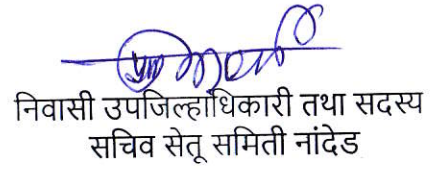 निवासी उपजिल्हाधिकारी तथा सदस्य
सचिव सेतू समिती नांदेड